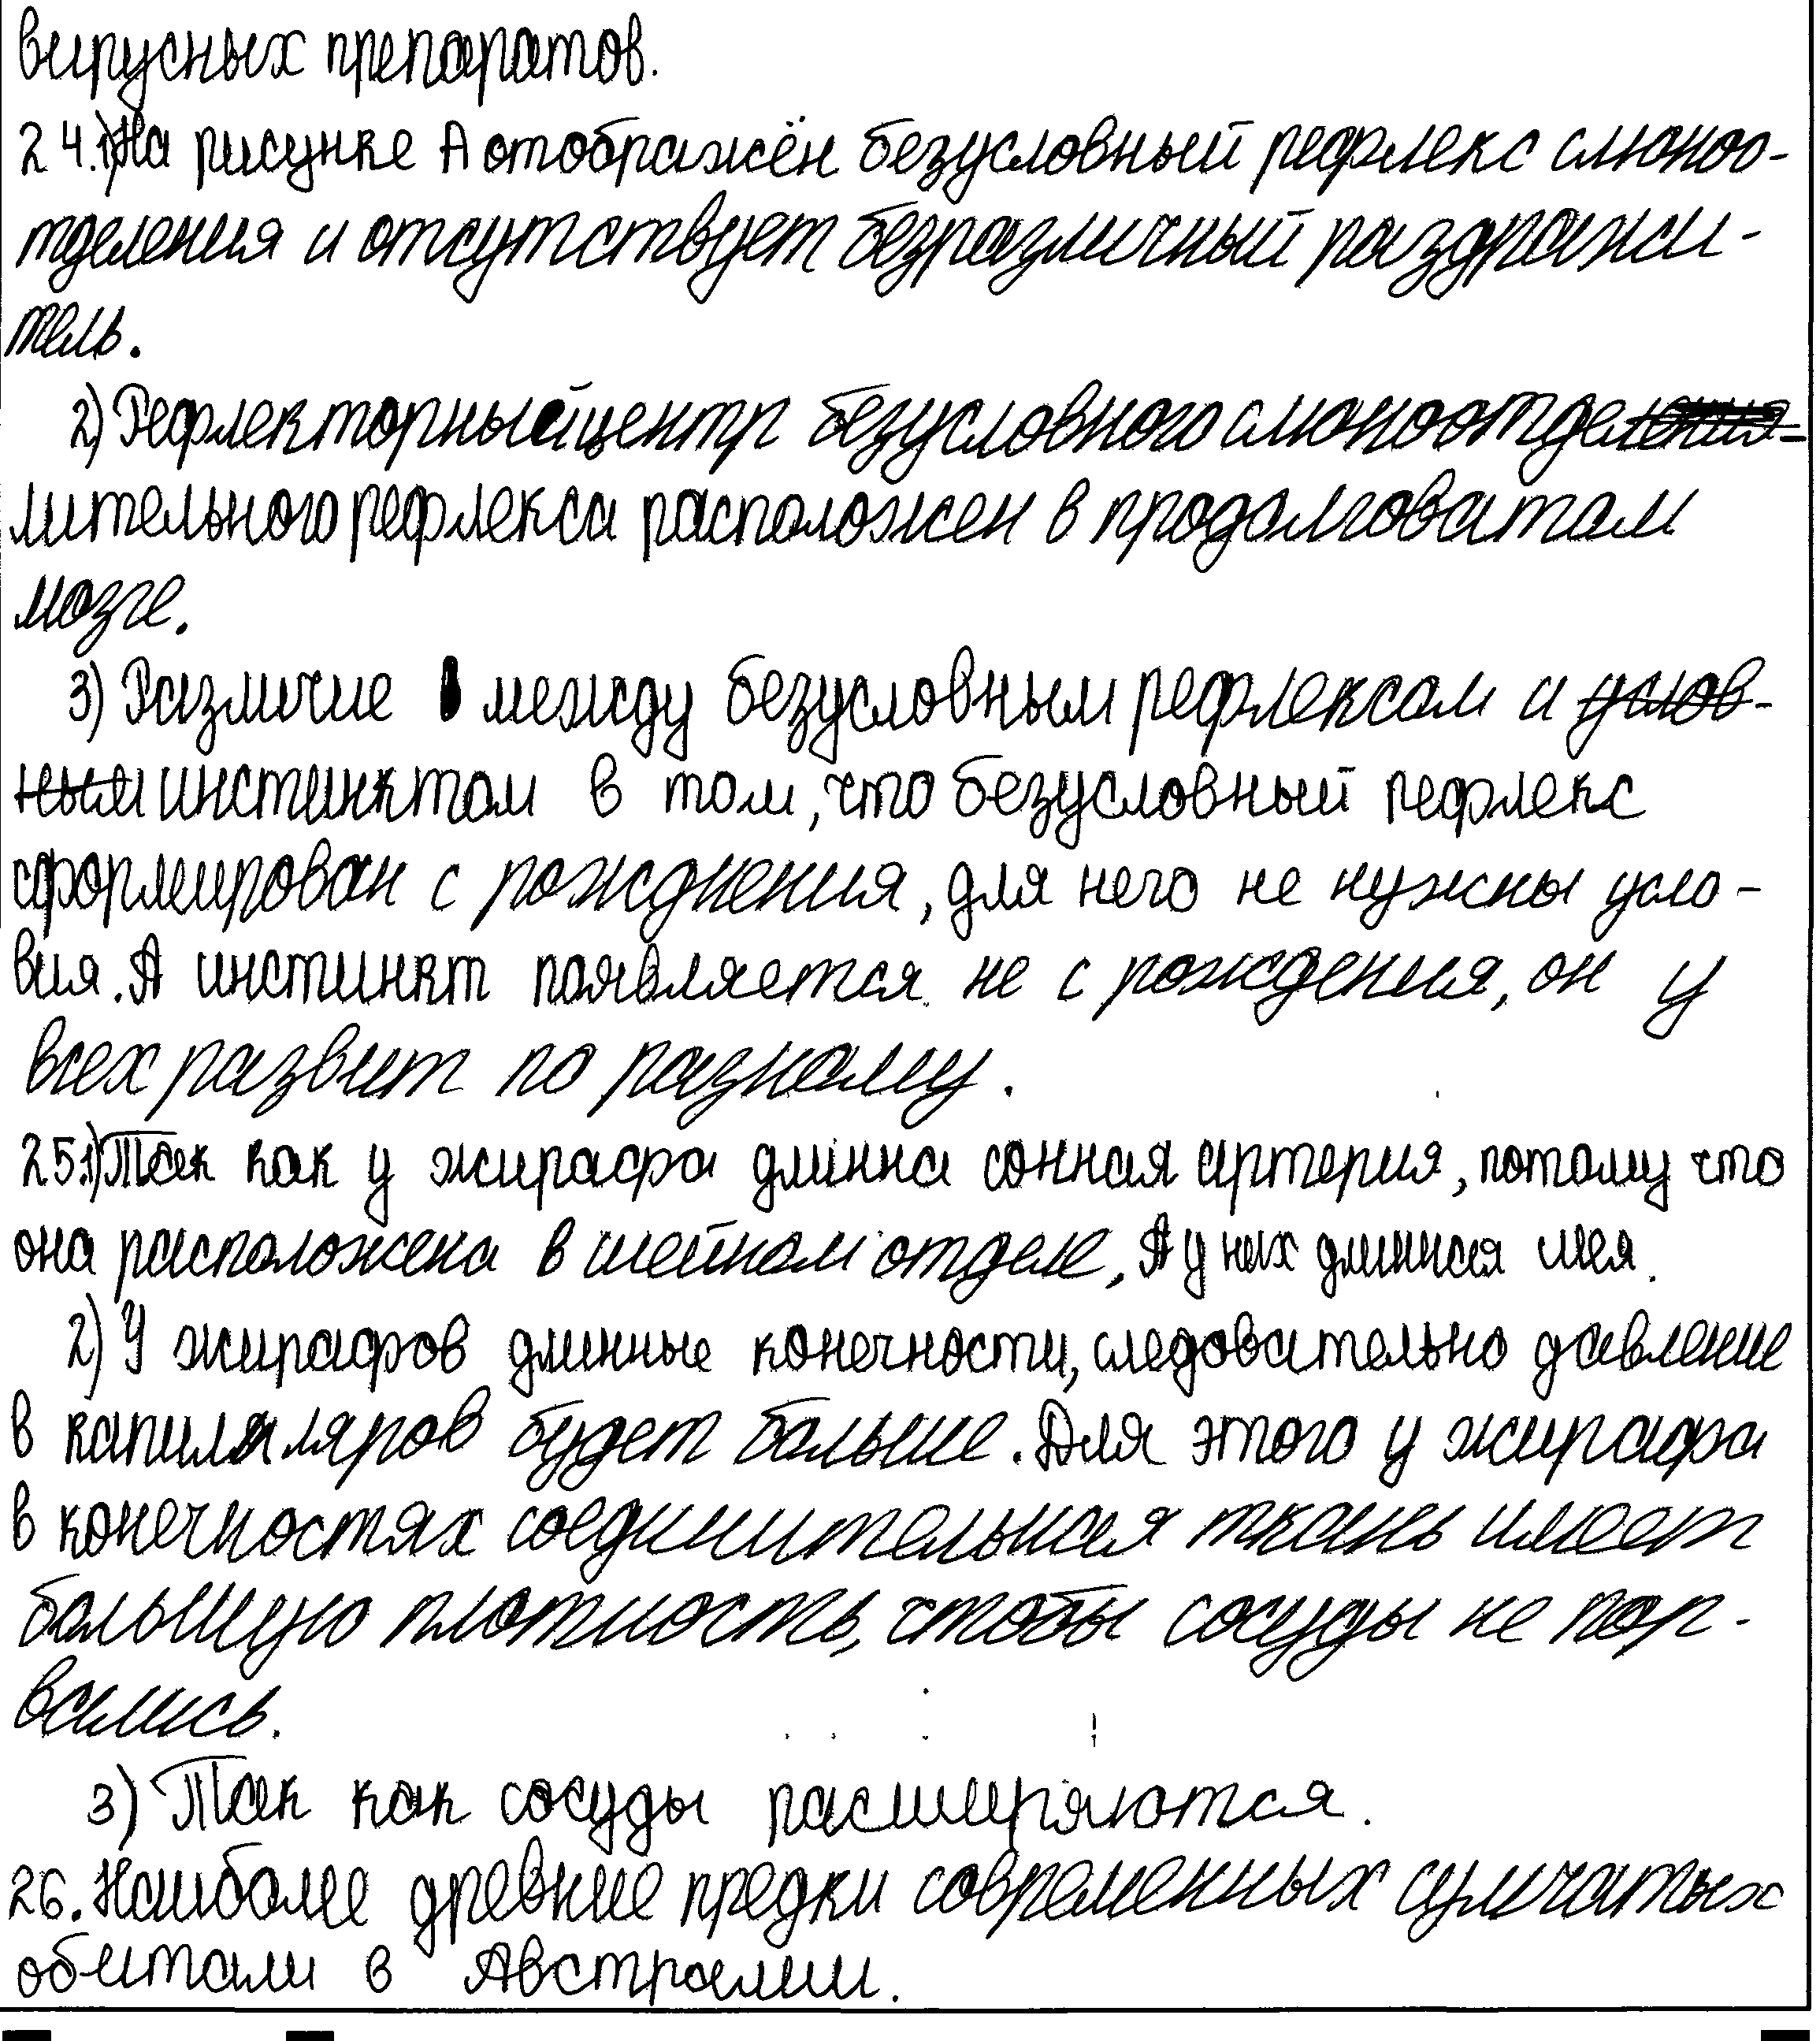 вирусных препаратов.
24.1)На рисунке А отображён безусловный рефлекс слюноо-
тделения и отсутствует безразличный раздражи-
тель.
2) Рефлекторный центр безусловного слюноотделения-
лительного рефлекса расположен в продолговатом
мозге.
3) Различие между безусловным рефлексом и услов-
ным инстинктом в том, что безусловный рефлекс
сформирован с рождения, для него не нужны усло-
вия. А инстинкт появляется не с рождения, он у
всех развит по разному.
25.1)Так как у жирафа длинна сонная артерия, потому что
она расположена в шейном отделе, А у них длинная шея.
2) У жирафов длинные конечности, следовательно давление
в капилляров будет больше. Для этого у жирафа
в конечностях соединительная ткань имеет
большую плотность, чтобы сосуды не пор-
вались.
3) Так как сосуды расширяются.
26. Наиболее древние предки современных сумчатых
обитали в Австралии.